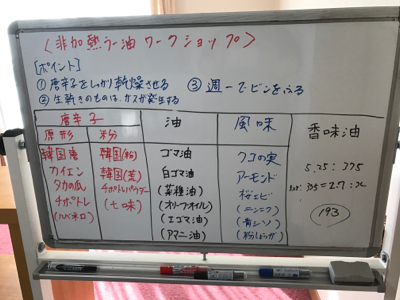 〈非加熱ラー油ワークショップ〉
[ポイント]
①唐辛子をしっかり乾燥させる ③週一でビンをふる
②生乾きのものは、ガスが発生する
唐辛子 油 風味 香味油
原形 粉
韓国産 韓国(粉) ゴマ油 クコの実
カイエン 韓国(荒) 白ゴマ油 アーモンド 5.25:375
タカの爪 チポトレパウダー (菜種油) 桜エビ
チポトレ (七味) (オリーブオイル) (ニンニク) (193)
(ハバネロ) (エゴマ油) (青シソ)
(アマニ油)